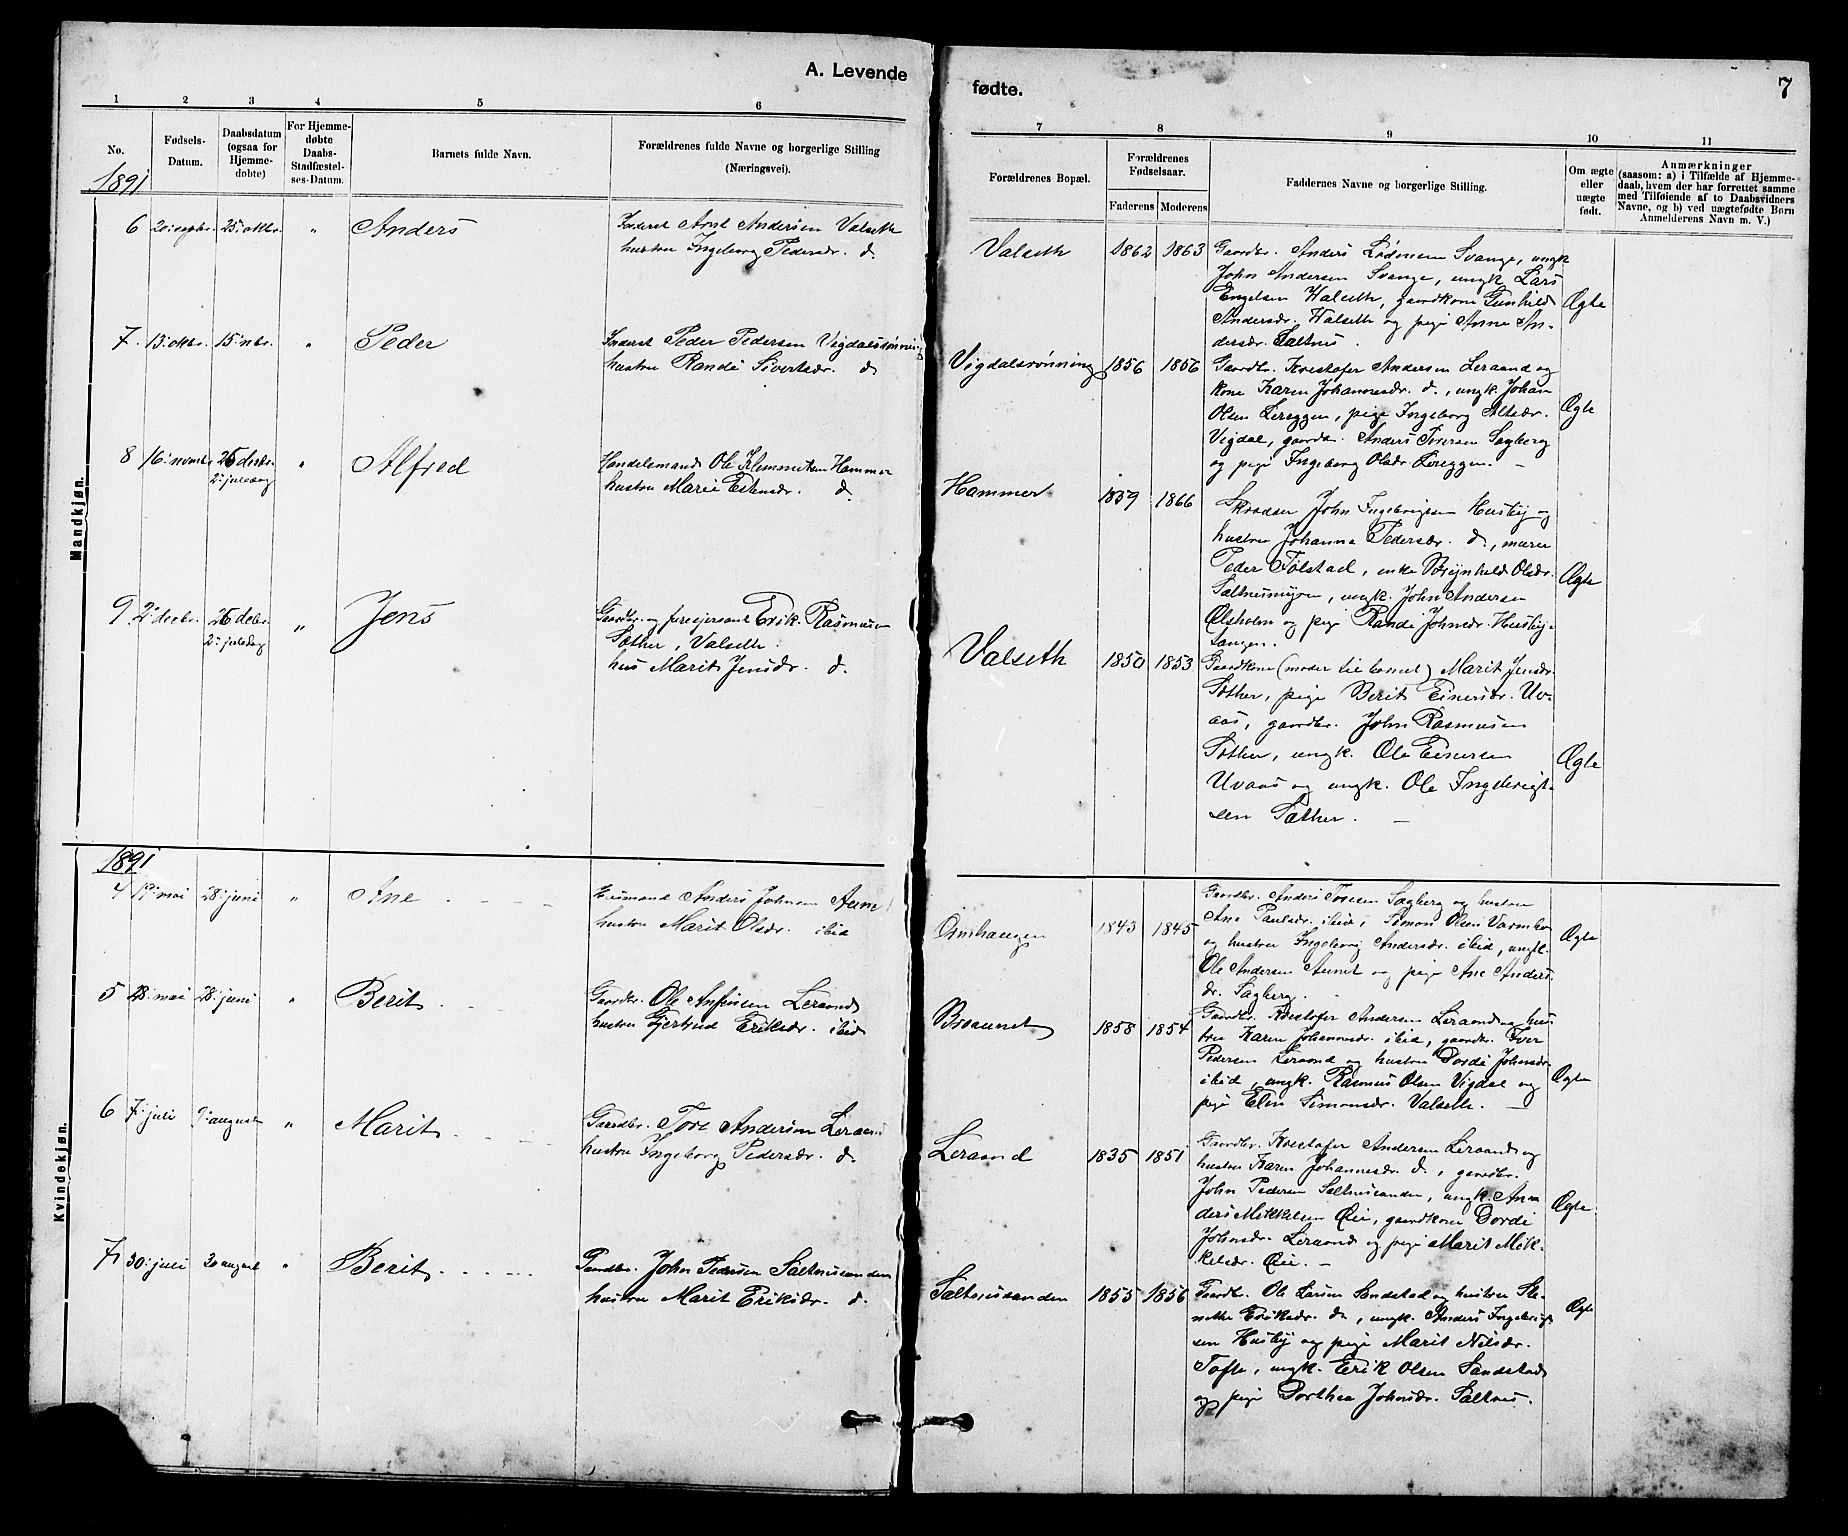 A. Levende
fødte.
7
1 2 3 4 5 6
7 8 9 10 11
No.
Fødsels-
Datum.
Daabsdatum
(ogsaa for
Hjemme-
døbte)
For Hjemme-
døbte
Daabs-
Stadfæstel-
ses-Datum.
Barnets fulde Navn.
Forældrenes fulde Navne og borgerlige Stilling
(Næringsvei).
Forældrenes Bopæl.
Forældrenes
Fødselsaar.
Faderens Moderens
Faddernes Navne og borgerlige Stilling.
Om ægte
eller
uægte
født.
Anmærkninger
(saasom: a) i Tilfælde af Hjemme-
daab, hvem der har forrettet samme
med Tilføiende af to Daabsvidners
Navne, og b) ved uægtefødte Børn
Anmelderens Navn m. V.)
1891
Mandkjøn.
6 20: septbr. 25: oktbr. " Anders
Inderst Arnt Andersen Valseth
hustru Ingeborg Pedersdr. d.
Valseth 1862 1863
Gaardbr. Anders Svange, ungk
John Andersen Svange, ungk Lars
Engelsen Walseth, gaardkone Gunhild
Andersdr. Walseth og pige Anne An-
dersdr. Saltnes.
Ægte
7 13: oktbr. 15: nbr. " Peder
Inderst Peder Pedersen Vigdalsrønning
hustru Randi Sivertsdr. d.
Vigdalsrønning 1856 1856
Gaardbr. Kristofer Andersen Leraand og
kone Karen Johannesdr. d., ungk. Johan
Olsen Lereggen, pige Ingeborg
Vigdal, gaardbr. Anders Toresen Sagberg
og pige Ingeborg Olsdr Lereggen. –
Ægte
8 16: novbr. 26 decbr. " Alfred
2: juledag
Handelsmand Ole Klemmetsen Hammer
hustru Marie Estensdr. d.
Hammer 1859 1866
Skrædder John Ingebrigtsen Husby og
hustru Johanna Pedersdr. d., murer
Peder Følstad, enke Brynhild Olsdr.
Saltnesmyren, ungk. John Andersen
Ølsholm og pige Randi Johnsdr. Husby-
tangen.
Ægte
9 2: decbr. 26 debr. " Jens
2: juledag
Gaardbr. og Erik Rasmusen
Sæther, Valseth.
hus Marit Jensdr. d.
Valseth 1850 1853
Gaardkone (moder til barnet) Marit Jensdr.
Sæther, pige Berit Einersdr. Uv-
aas, gaardbr. John Rasmusen
Sæther, ungk. Ole Einersen
Uvaas og ungk. Ole Ingebrigt-
sen Sæther. –
Ægte
1891
Kvindekjøn.
4 19: mai 28: juni " Ane
Husmand Anders Johnsen Aune
hustru Marit Olsdr. ibid
1843 1845
Gaardbr. Anders Toresen Sagberg og hustru
Ane Paulsdr. ibid, Simon Olsen
og hustru Ingeborg Andersdr. ibid, ungk.
Ole Andersen Aunet og pige Ane Anders-
dr. Sagberg.
Ægte
5 28: mai 28: juni " Berit
Gaardbr. Ole Anfinsen Leraand
hustru Gjertrud Eriksdr. ibid
1858 1854
Gaardbr. Kristofer Andersen Leraand og hus-
tru Karen Johannesdr. ibid, gaardbr. Iver
Pedersen Leraand og hustru Dordi Johnsdr.
ibid, ungk. Rasmus Olsen Vigdal og
pige Elin Simonsdr. Valseth. –
Ægte
6 7: juli 9: august " Marit
Gaardbr. Tore Andersen Leraand
hustru Ingeborg Pedersdr. d.
Leraand 1835 1851
Gaardbr. Kristofer Andersen Leraand og
hustru Karen Johannesdr. d., gaardbr.
John Pedersen Saltnessanden, ungk. An-
ders Mikkelsen Øie, gaardkone Dordi
Johnsdr. Leraand og pige Marit Mik-
kelsdr. Øie. –
Ægte
7 30: juli 30 august " Berit
Gaardbr. John Pedersen Saltnessanden
hustru Marit Eriksdr. d.
Saltnessanden 1855 1856
Gaardbr. Ole Larsen Sandstad og hustru Se-
nette Eriksdr. d., ungk. Anders Ingebrigt-
sen Husby og pige Marit Nilsdr.
Tofte, ungk. Erik Olsen Sandstad
og pige Dorthea Johnsdr. Saltnes.
Ægte